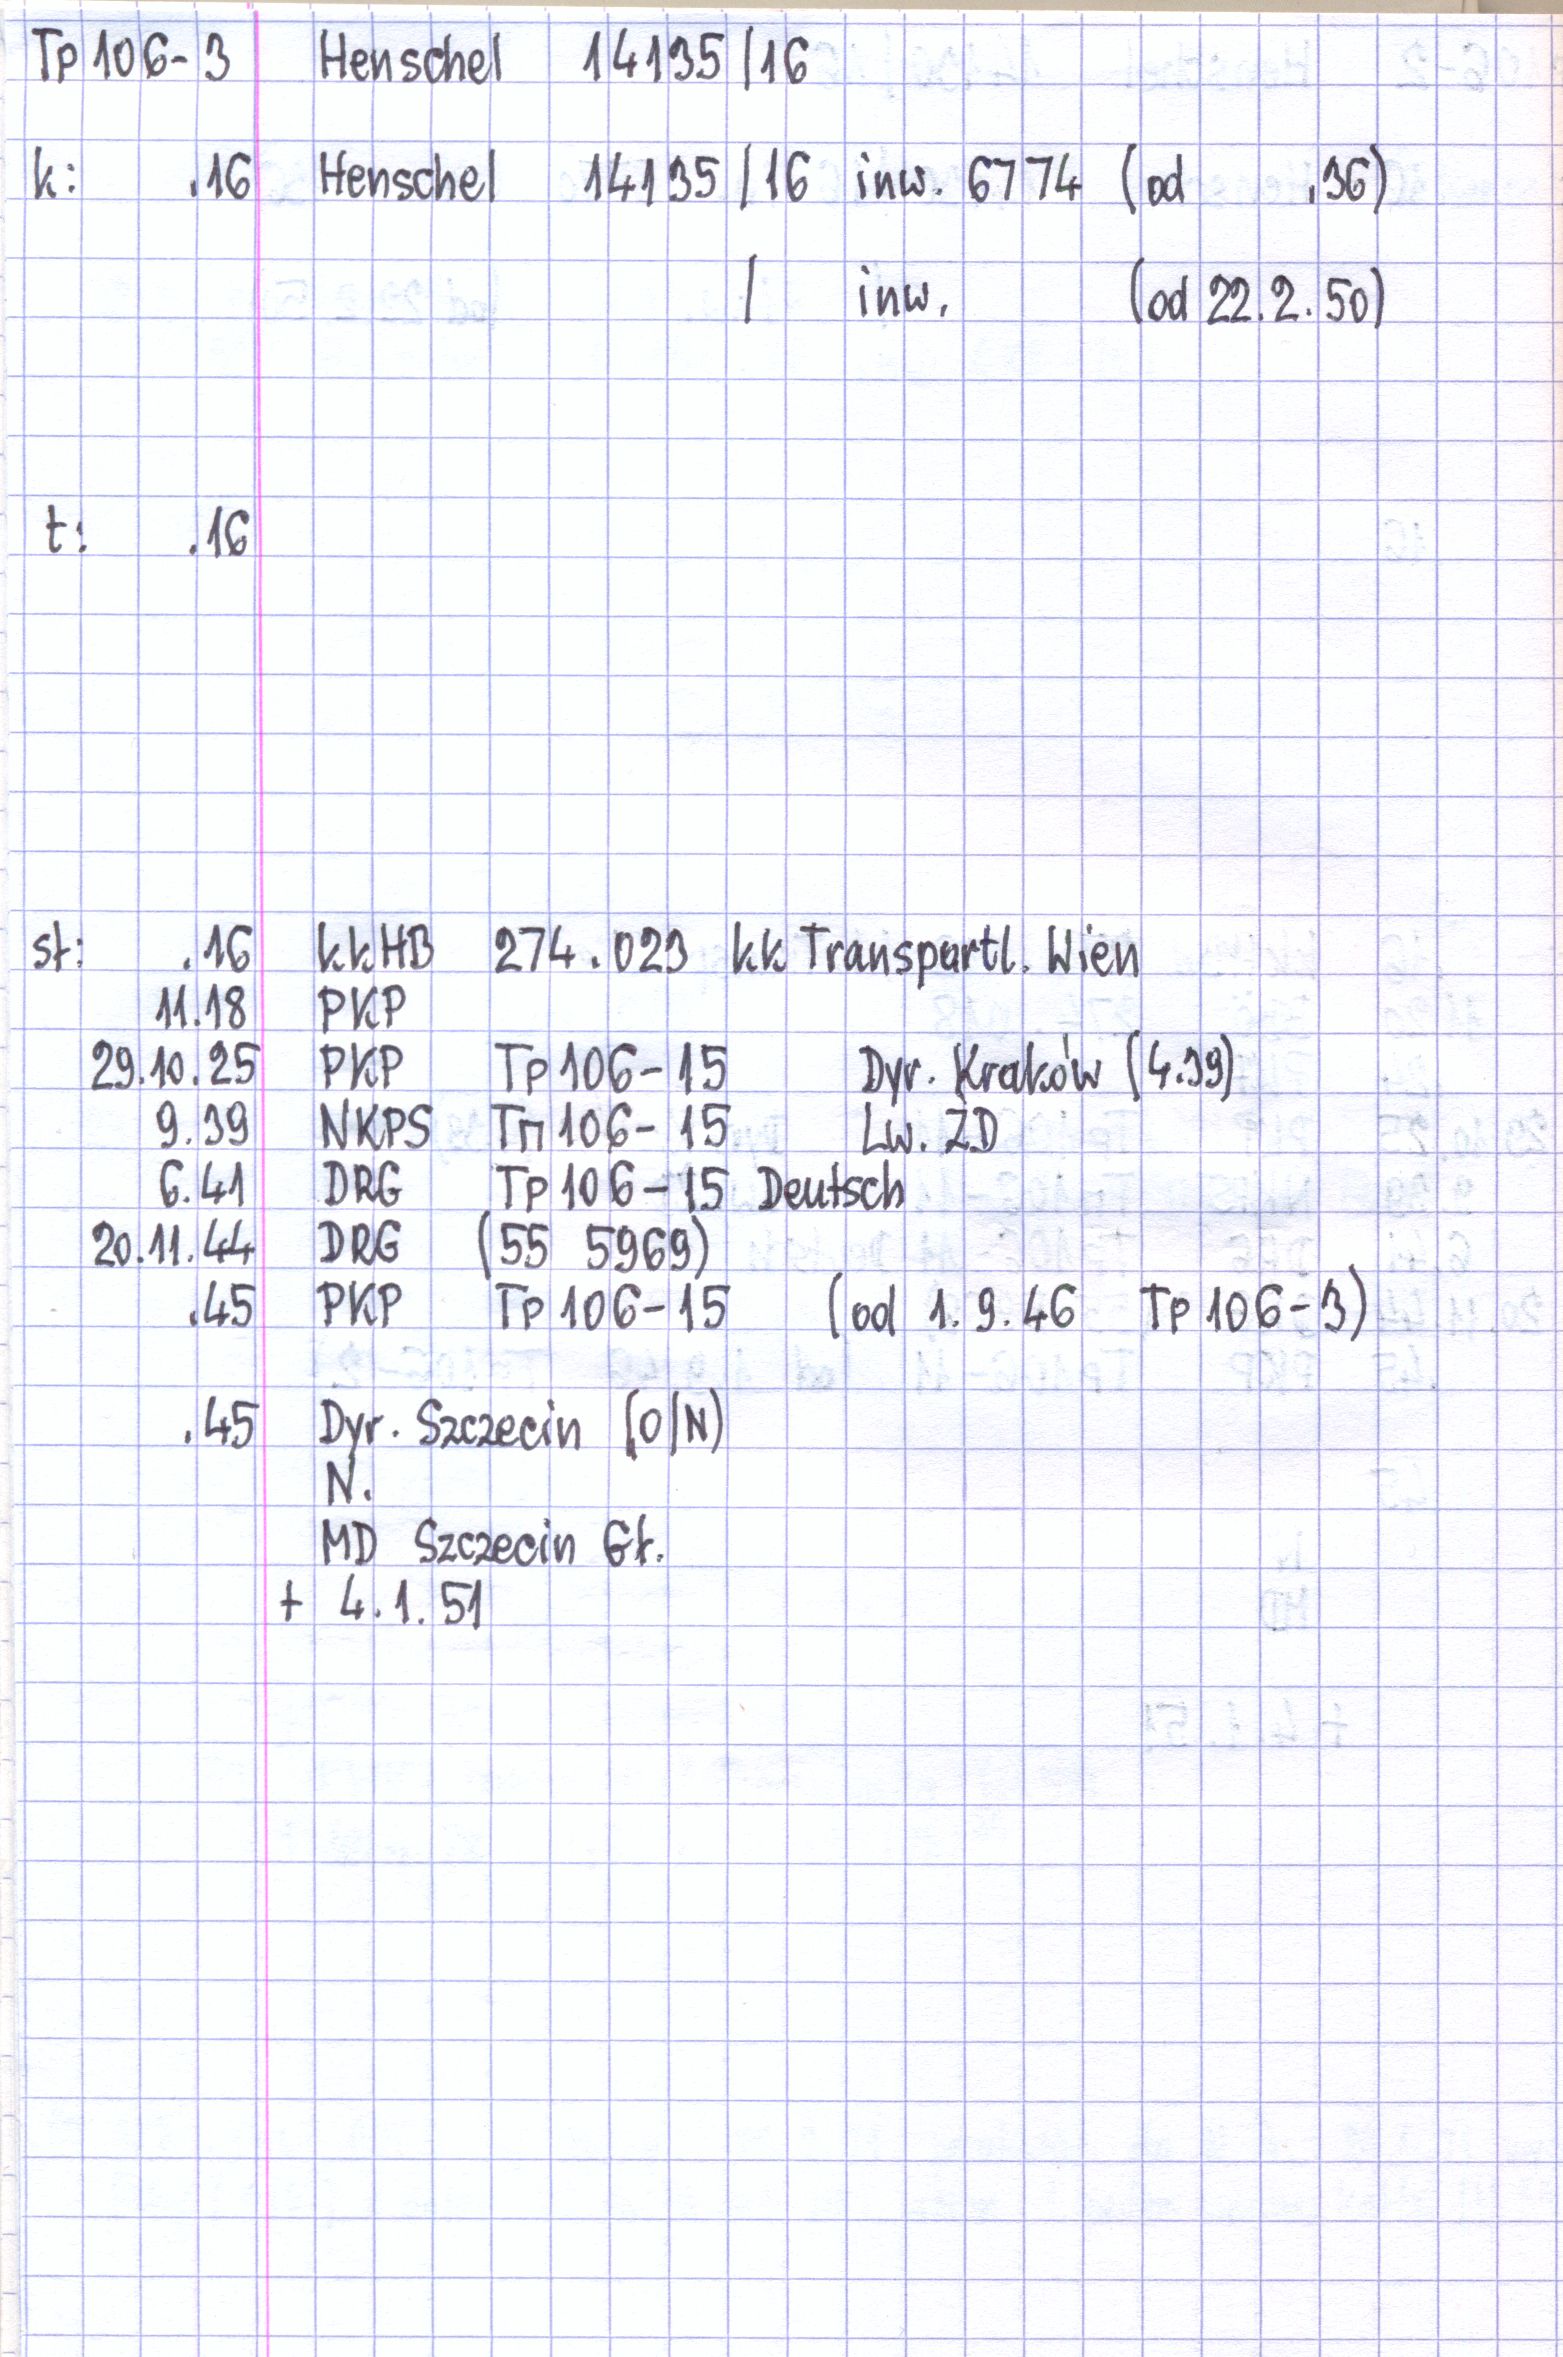 Tp 106-3 Henschel 14135/16
k: .16 Henschel 14135/16 inw. 6774 (od .36)
/ inw. (od 22.2.50)
t: .16
st: .16 kkHB 274.023 kk Transportl. Wien
11.18 PKP
29.10.25 PKP Tp 106-15 Dyr. Kraków (4.39)
9.39 NKPS Тп 106-15 Lw. ŻD
6.41 DRG Tp 106-15 Deutsch
20.11.44 DRG (55 5969)
.45 PKP Tp 106-15 (od 1.9.46 Tp 106-3)
.45 Dyr. Szczecin (O/N)
N.
MD Szczecin Gł.
+ 4.1.51